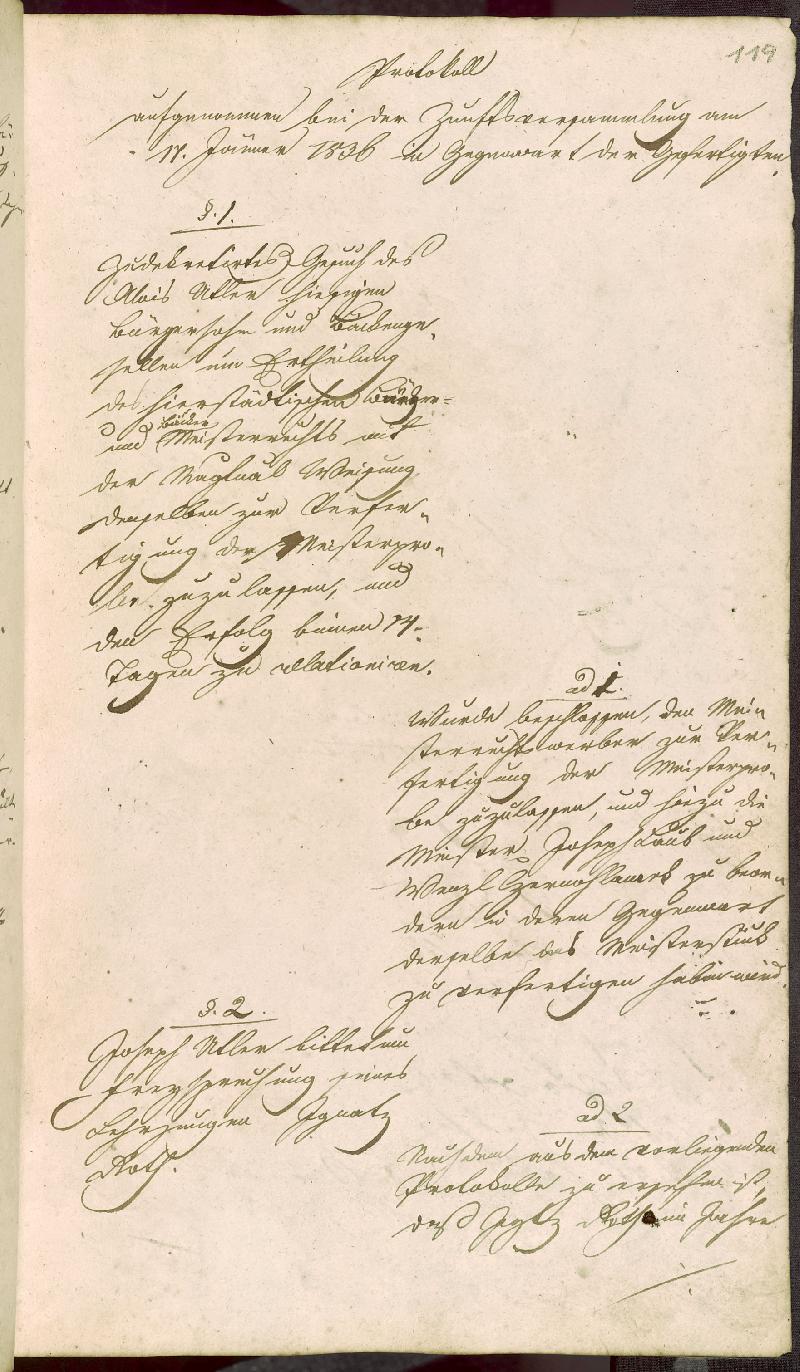 119
Protokoll
aufgenommen bei der Zunftsversammlung am
17. Jänner 1836 in Gegenwart der Gefertigten.
§. 1.
Zudekretirtes Gesuch des
Alois Utler hiesigen
Bürgersohn und Bäckenge-
sellen um Ertheilung
des hierstädtischen Bürger-
und Bäcker Meisterrechts mit
der Magstual Weisung
denselben zur Verfer-
tigung der Meisterpro-
be zuzulassen, und
den Erfolg binnen 14
Tagen zu relationiren.
ad 1.
Wurde beschlossen, den Mei-
sterrechtswerber zur Ver-
fertigung der Meisterpro-
be zuzulassen, und hiezu die
Meister Joseph Laub und
Wenzl zu beor-
dern in deren Gegenwart
derselbe das Meisterstück
zu verfertigen haben wird.
§. 2.
Joseph Utler bittet um
Freysprechung seines
Lehrjungen Ignatz
Roth.
ad 2
Nachdem aus dem vorliegenden
Protokolle zu ersehen ist,
daß Igtz Roth im Jahre